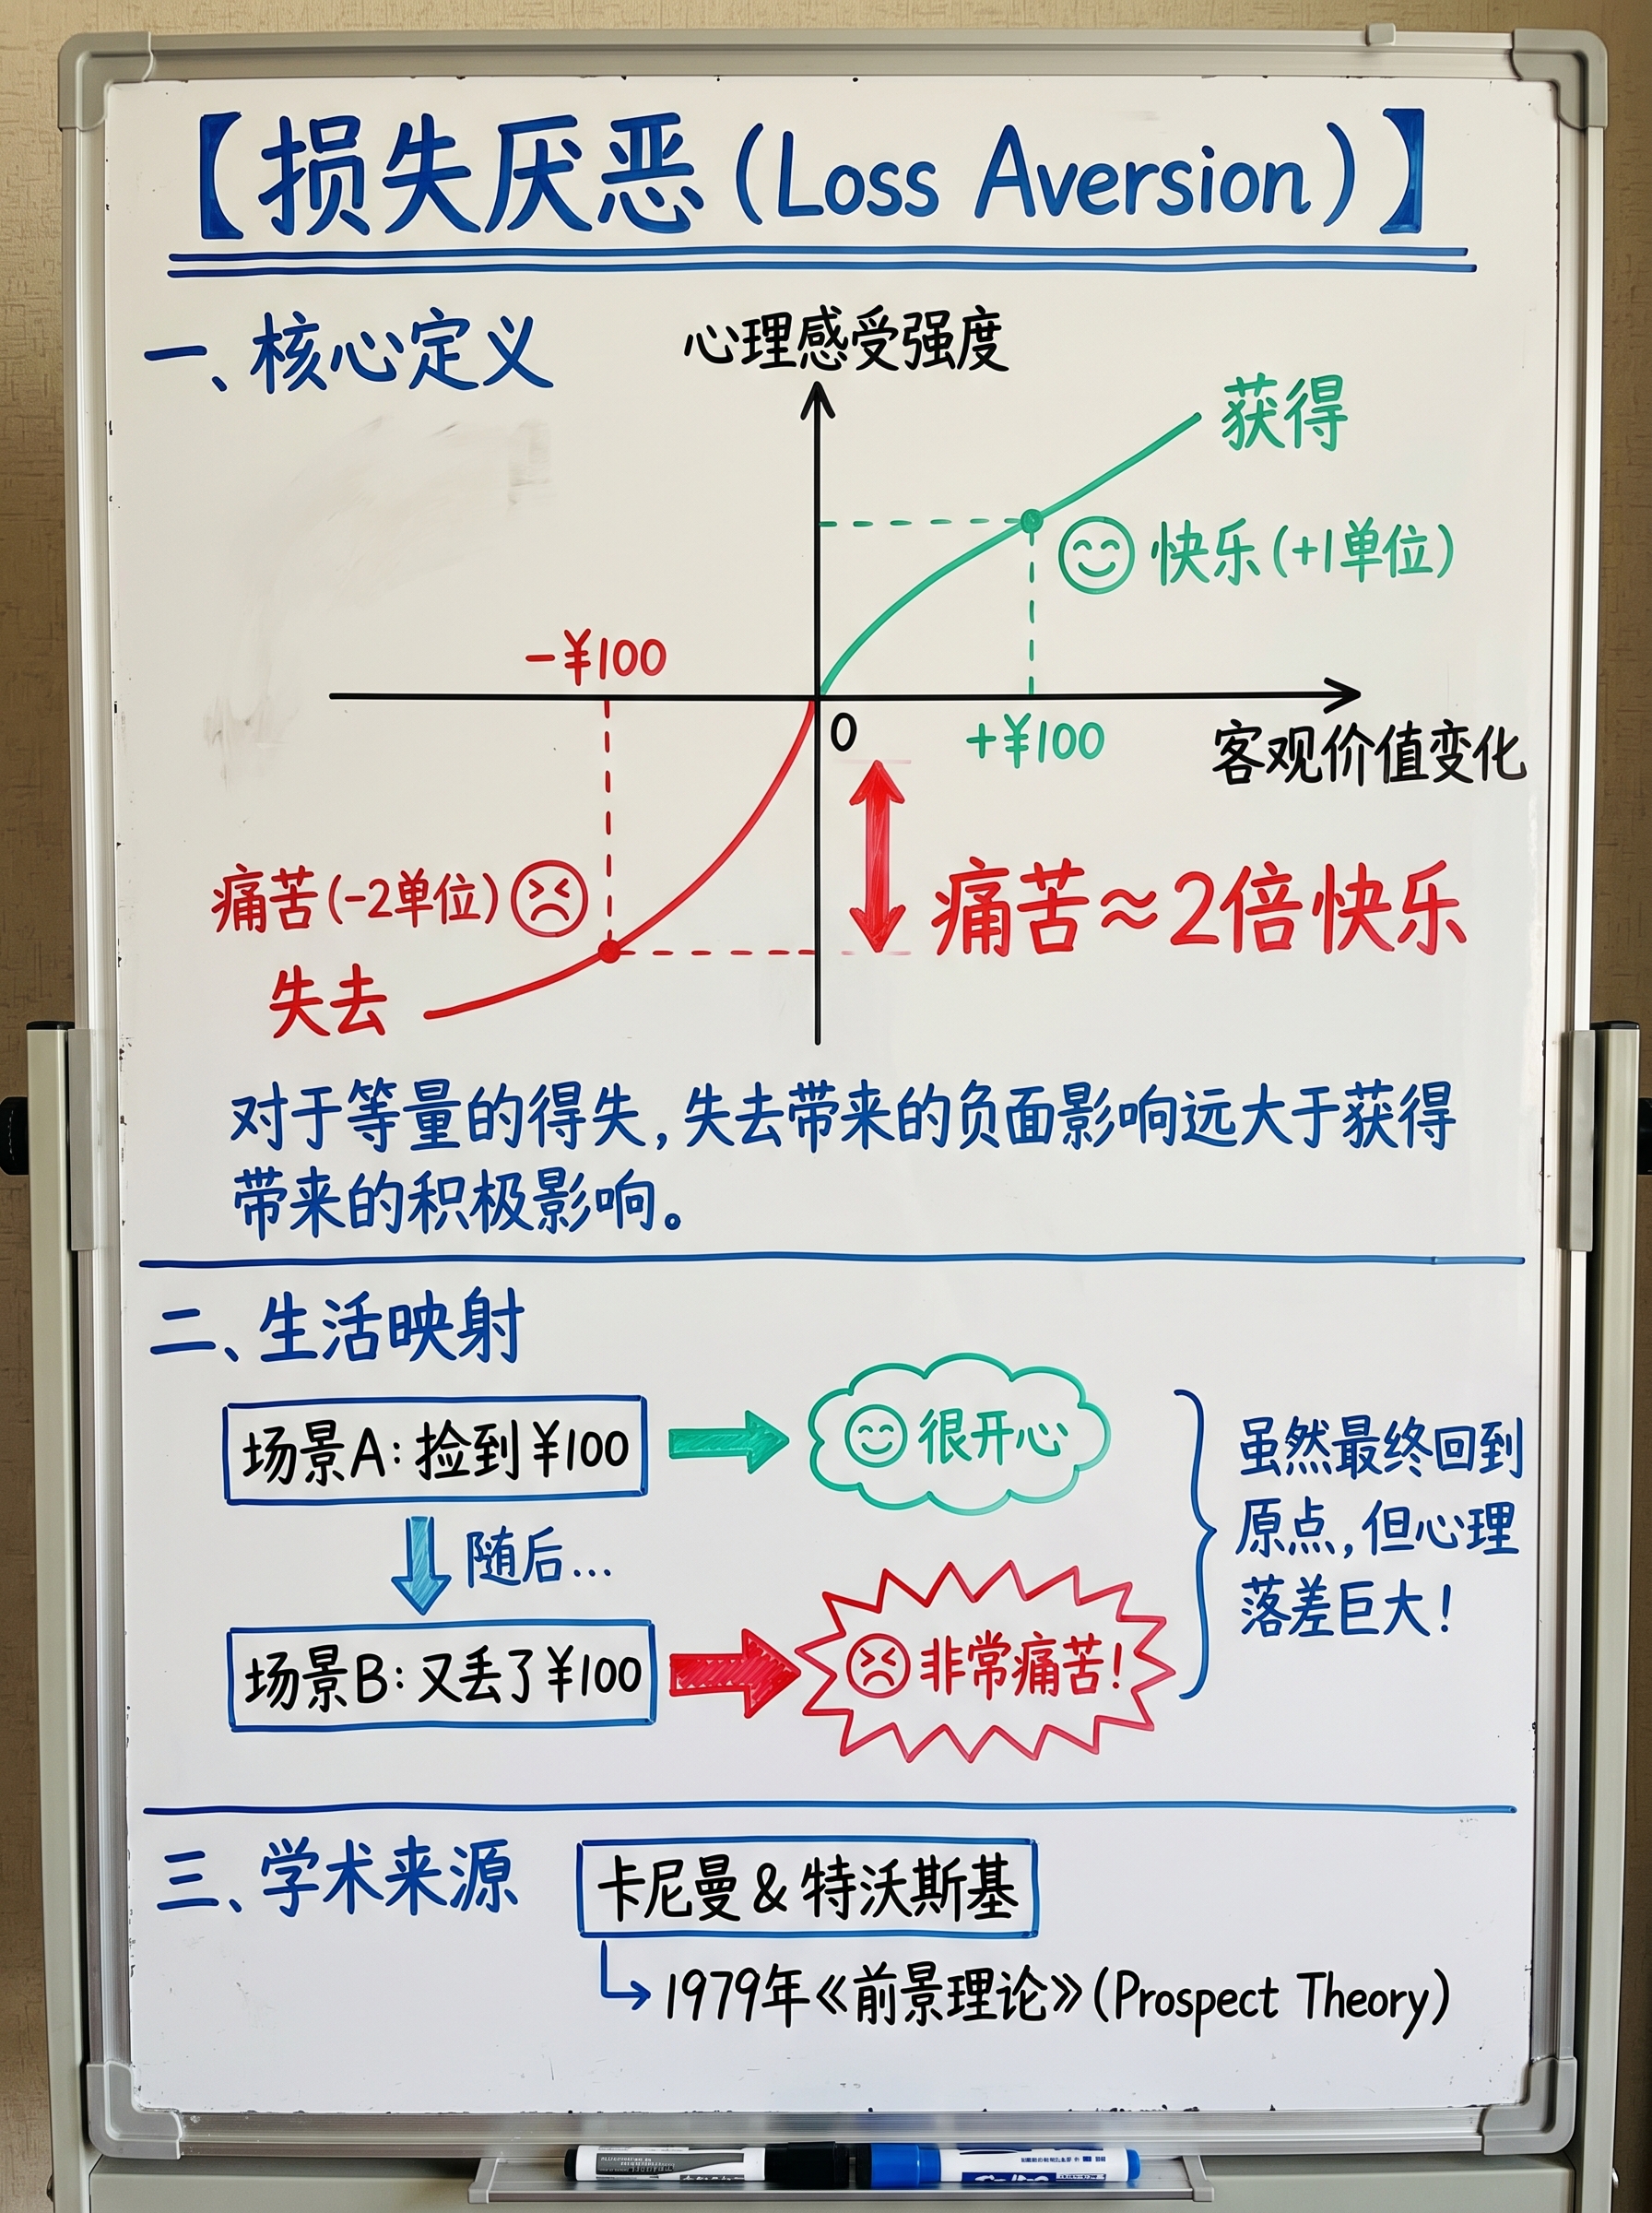 【损失厌恶(Loss Aversion)】
一、核心定义
心理感受强度
获得
快乐(+1单位)
-¥100
0
+¥100
客观价值变化
痛苦(-2单位)
痛苦≈2倍快乐
失去
对于等量的得失,失去带来的负面影响远大于获得
带来的积极影响。
二、生活映射
场景A:捡到¥100
很开心
随后...
场景B:又丢了¥100
非常痛苦!
虽然最终回到
原点,但心理
落差巨大!
三、学术来源
卡尼曼&特沃斯基
1979年《前景理论》(Prospect Theory)